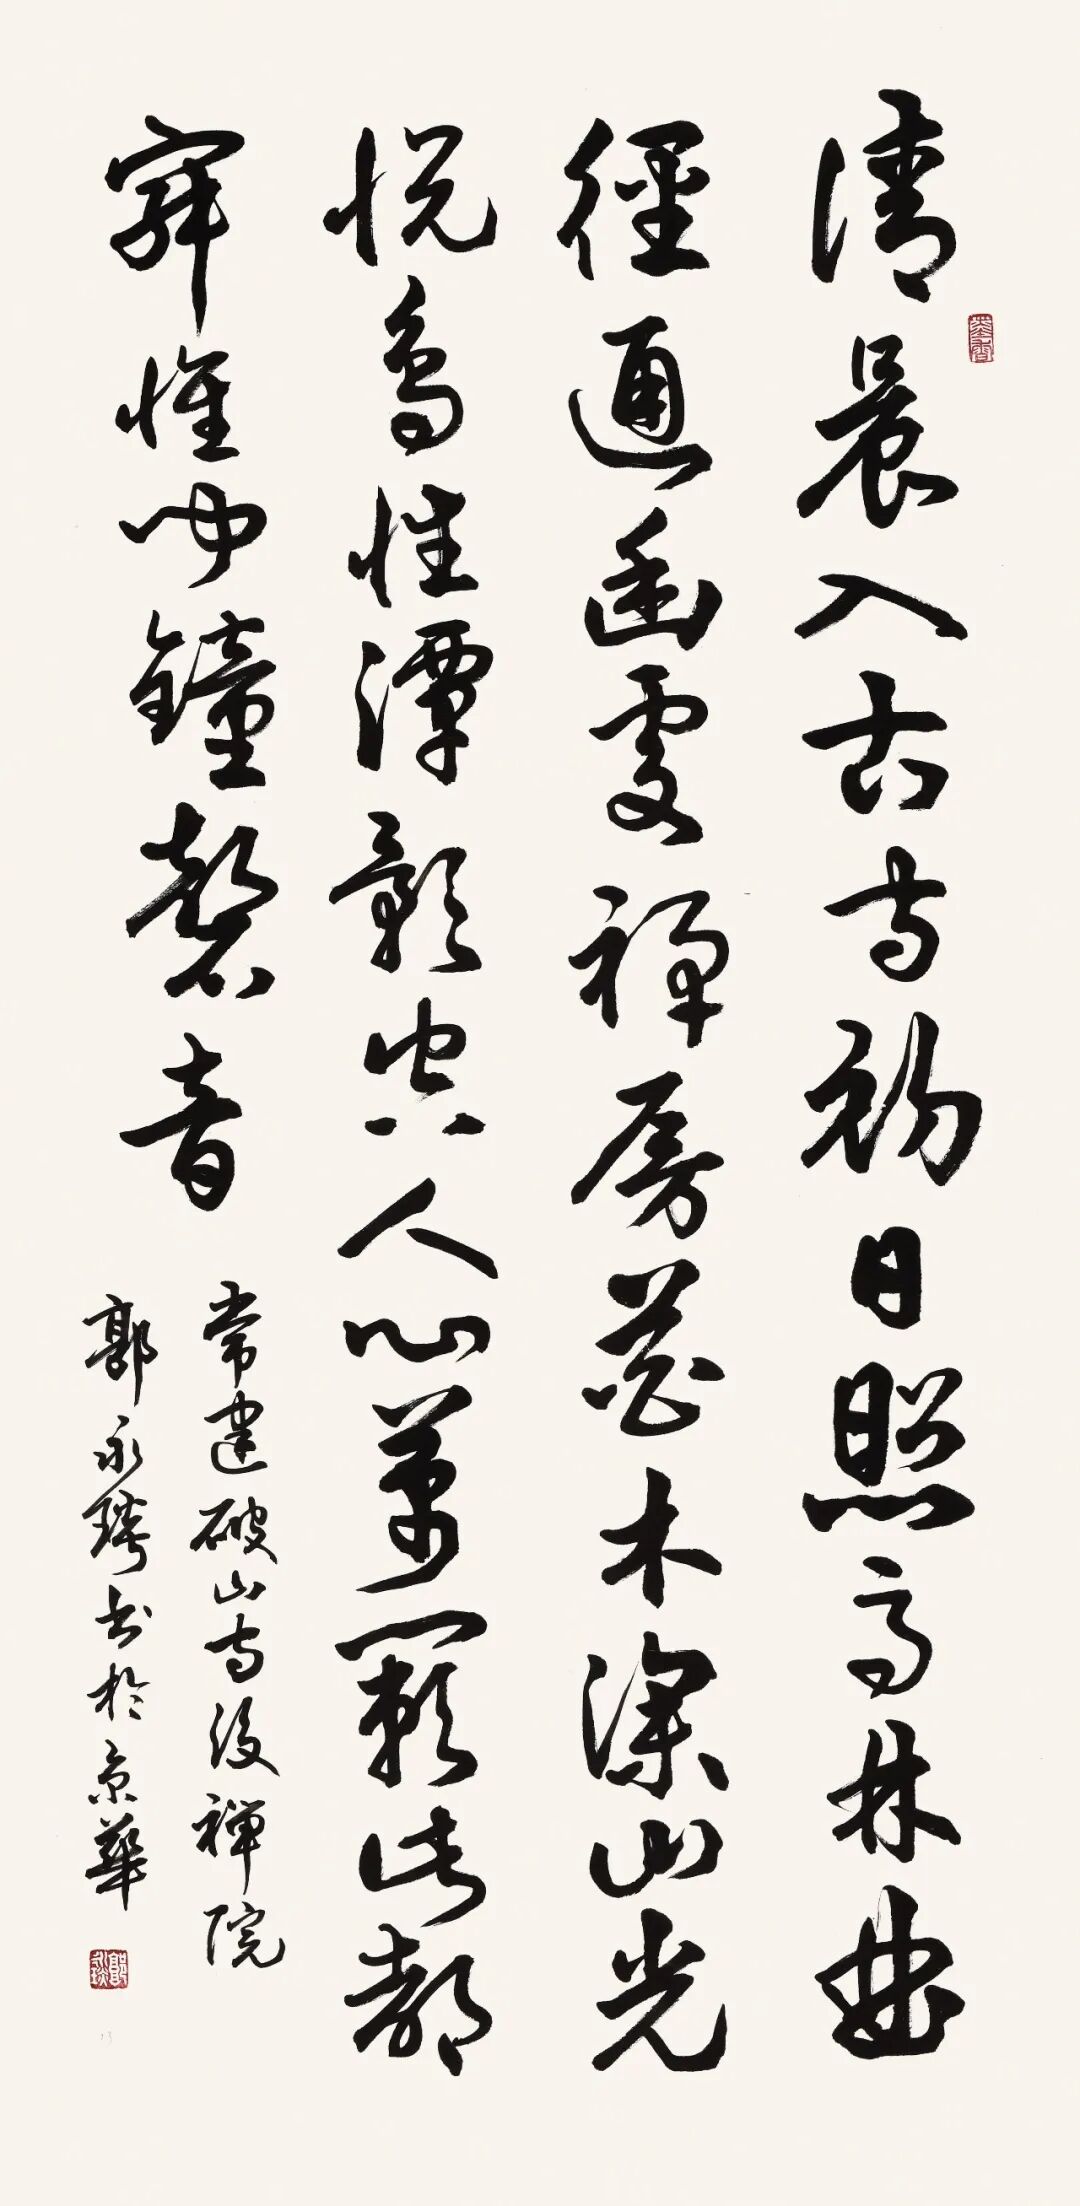 清晨入古寺初日照高林曲
徑通幽處禪房花木深山光
悅鳥性潭影空人心萬籟此都
寂惟聞鐘磬音
常建破山寺後禪院
郭永琰書於京華